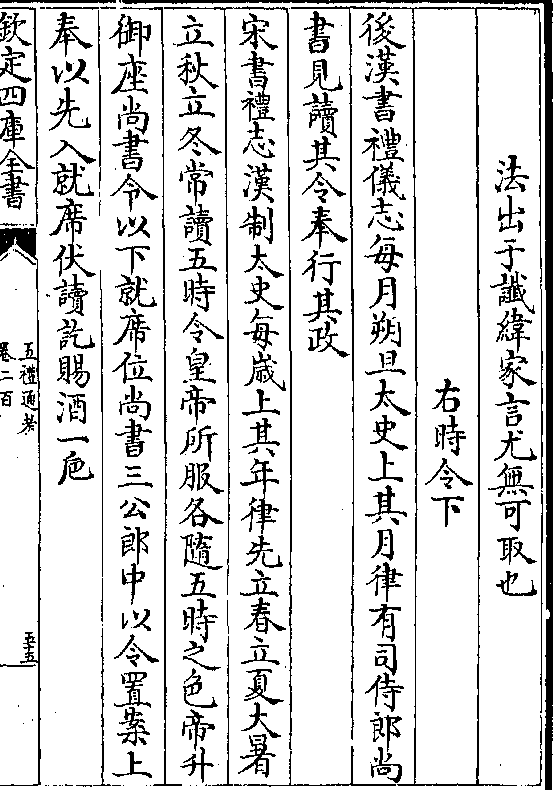 法出于讖緯家言尤無可取也
右時令下
後漢書禮儀志每月朔旦太史上其月律有司侍郎尚
書見讀其令奉行其政
宋書禮志漢制太史每歲上其年律先立春立夏大暑
立秋立冬常讀五時令皇帝所服各隨五時之色帝升
御座尚書令以下就席位尚書三公郎中以令置案上
奉以先入就席伏讀訖賜酒一巵
欽定四庫全書
五禮通考
卷二百
五十五